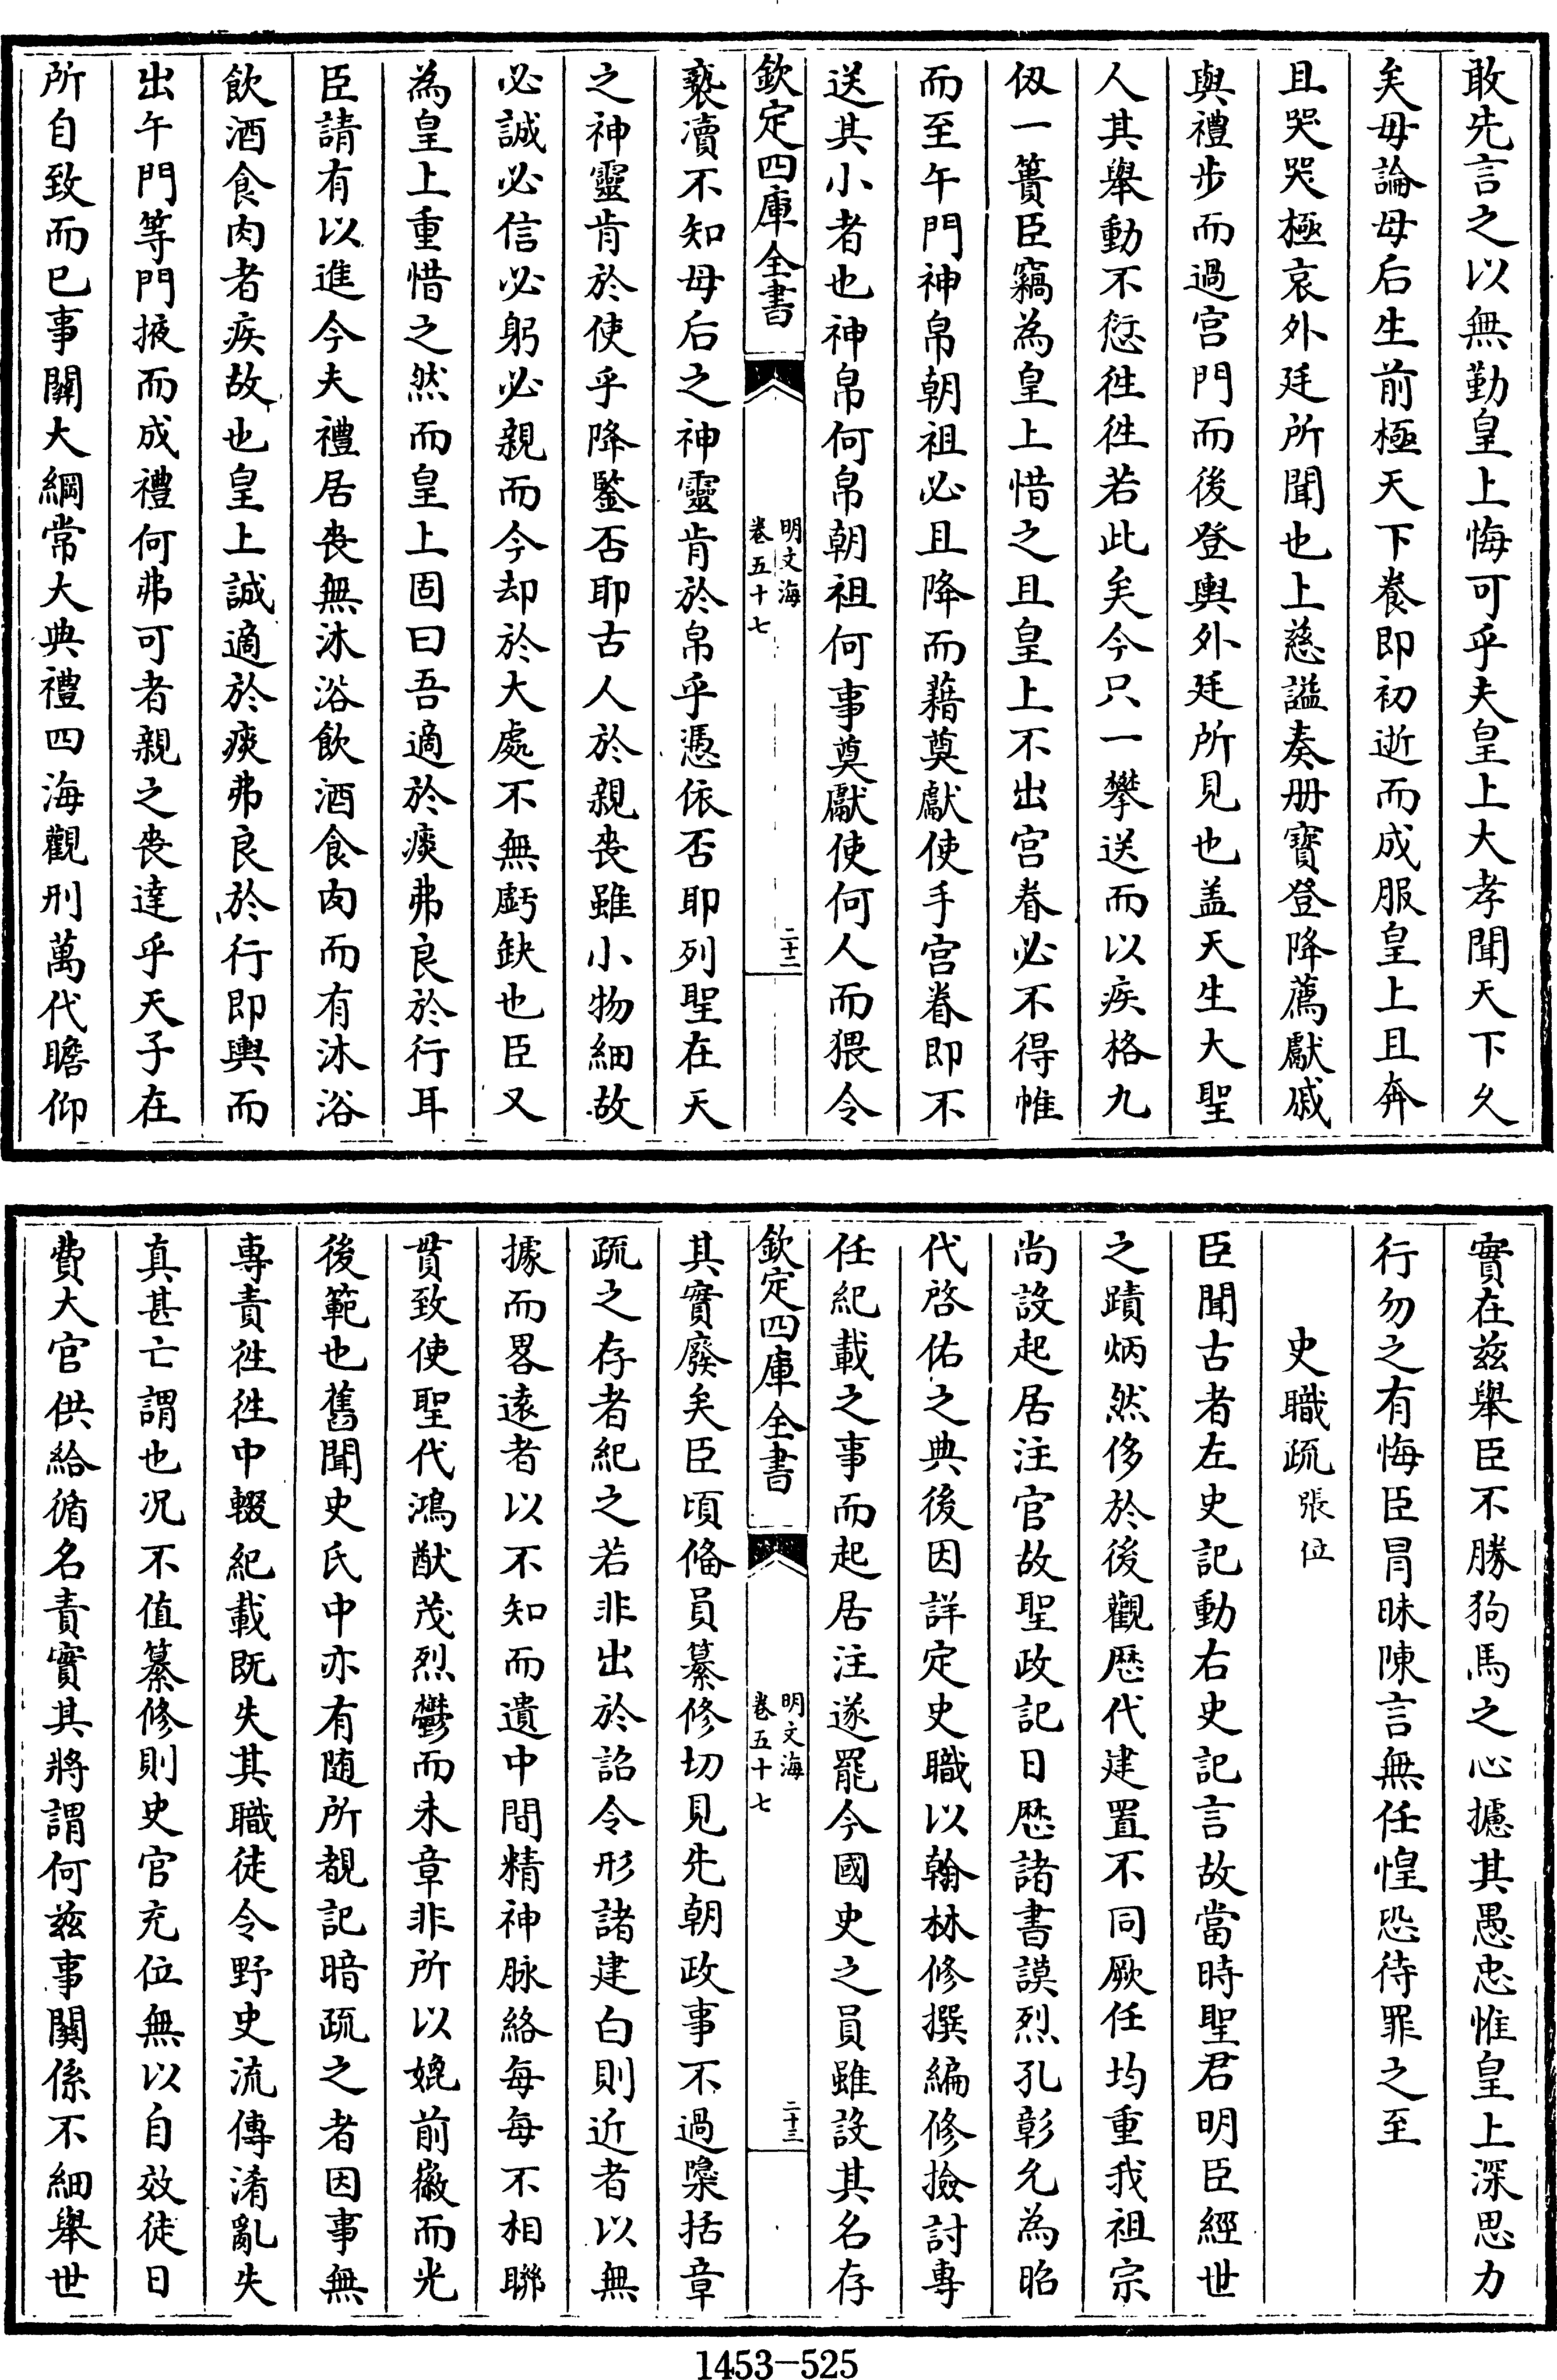 敢先言之以無勤皇上悔可乎夫皇上大孝聞天下久
矣毋論母后生前極天下養即初逝而成服皇上且奔
且哭哭極哀外廷所聞也上慈謚奏册寳登降薦獻戚
與禮步而過宫門而後登輿外廷所見也盖天生大聖
人其舉動不愆徃徃若此矣今只一攀送而以疾格九
仭一簣臣竊為皇上惜之且皇上不出宫眷必不得帷
而至午門神帛朝祖必且降而藉奠獻使手宫眷即不
送其小者也神帛何帛朝祖何事奠獻使何人而猥令
欽定四庫全書
明文海
卷五十七
二十二
褻瀆不知母后之神靈肯於帛乎憑依否耶列聖在天
之神靈肯於使乎降鑒否耶古人於親喪雖小物細故
必誠必信必躬必親而今却於大處不無虧缺也臣又
為皇上重惜之然而皇上固曰吾適於痰弗良於行耳
臣請有以進今夫禮居喪無沐浴飲酒食肉而有沐浴
飲酒食肉者疾故也皇上誠適於痰弗良於行即輿而
出午門等門掖而成禮何弗可者親之喪達乎天子在
所自致而已事關大綱常大典禮四海觀刑萬代瞻仰
實在兹舉臣不勝狗馬之心攄其愚忠惟皇上深思力
行勿之有悔臣冒昧陳言無任惶恐待罪之至
史職疏 張位
臣聞古者左史記動右史記言故當時聖君明臣經世
之蹟炳然侈於後觀歴代建置不同厥任均重我祖宗
尚設起居注官故聖政記日歴諸書謨烈孔彰允為昭
代啓佑之典後因詳定史職以翰林修撰編修撿討專
任紀載之事而起居注遂罷今國史之員雖設其名存
欽定四庫全書
明文海
卷五十七
二十三
其實廢矣臣頃俻員纂修切見先朝政事不過檃括章
疏之存者紀之若非出於詔令形諸建白則近者以無
據而畧遠者以不知而遺中間精神脉絡每每不相聯
貫致使聖代鴻猷茂烈鬱而未章非所以媲前徽而光
後範也舊聞史氏中亦有随所覩記暗疏之者因事無
專責徃徃中輟紀載既失其職徒令野史流傳淆亂失
真甚亡謂也况不值纂修則史官充位無以自效徒日
費大官供給循名責實其將謂何兹事關係不細舉世
1453-525